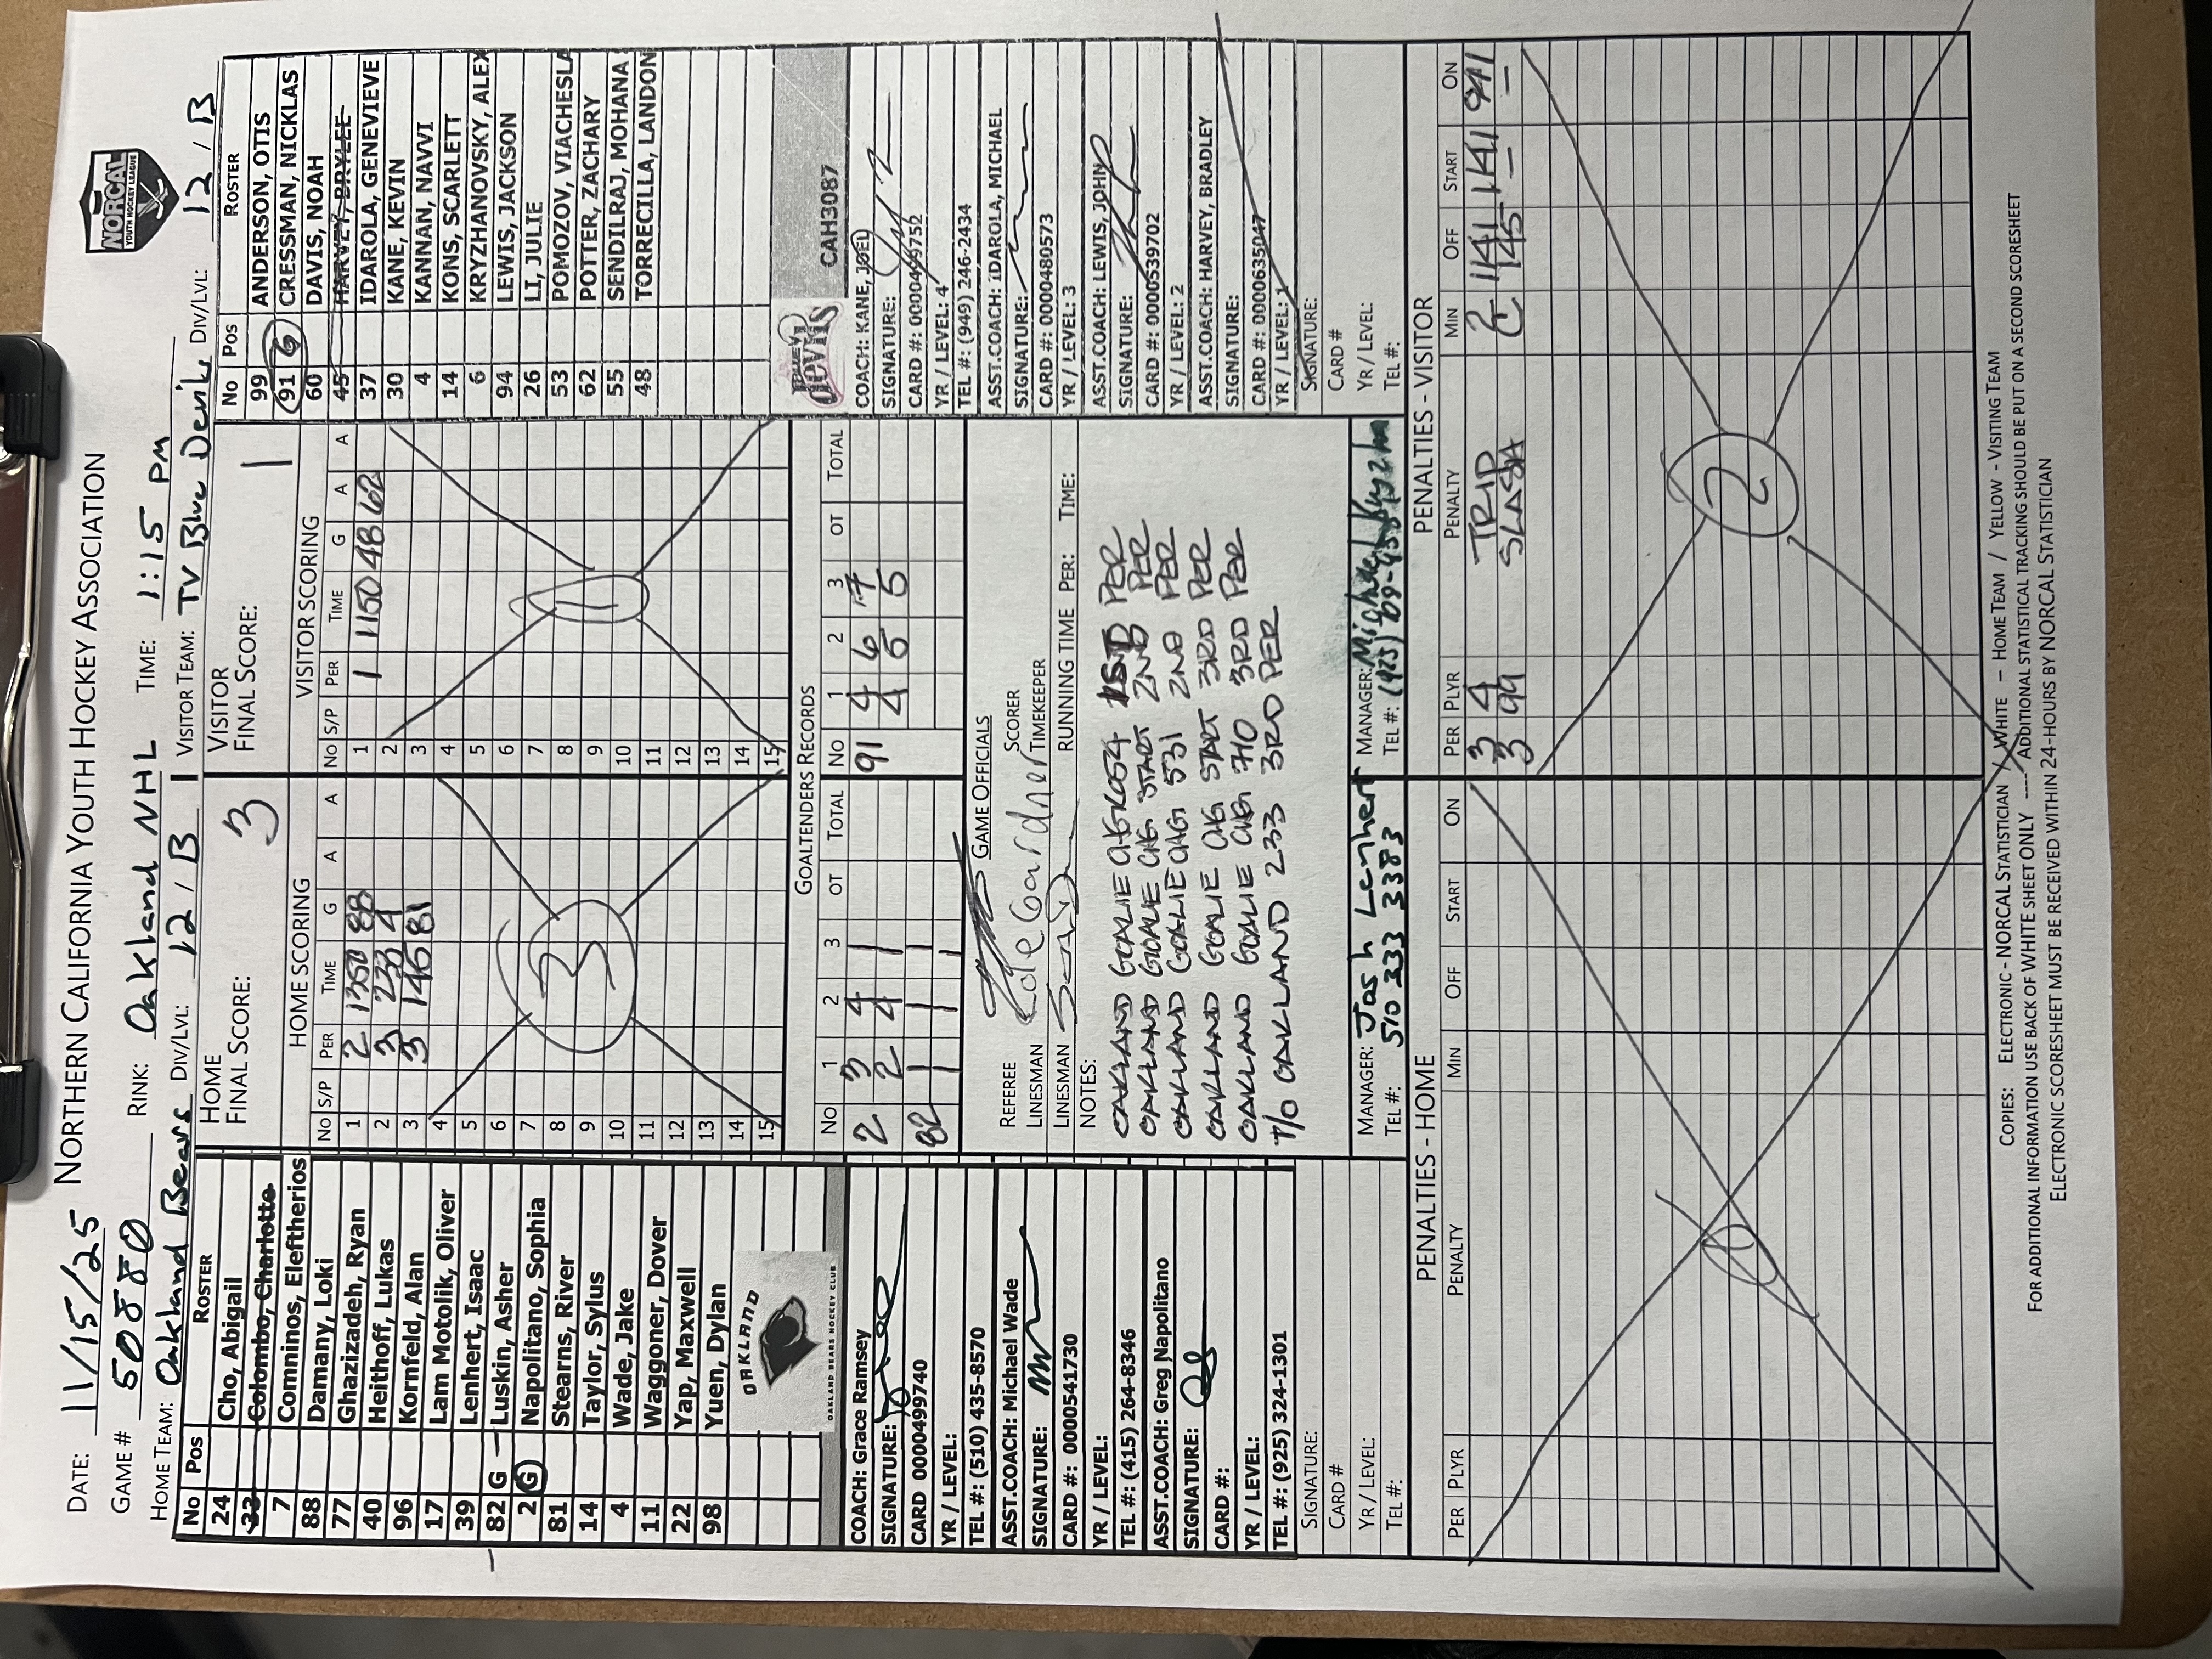 DATE: 11/15/25 NORTHERN CALIFORNIA YOUTH HOCKEY ASSOCIATION
NORCAL
YOUTH HOCKEY LEAGUE
GAME # 50880 RINK: Oakland NHL TIME: 1:15 pm
HOME TEAM: Oakland Bears DIV/LVL: 12 / B VISITOR TEAM: TV Blue Devils DIV/LVL: 12 / B
No Pos ROSTER
24 Cho, Abigail
33 Colombo, Charlotte
7 Comninos, Eleftherios
88 Damany, Loki
77 Ghazizadeh, Ryan
40 Heithoff, Lukas
96 Kornfeld, Alan
17 Lam Motolik, Oliver
39 Lenhert, Isaac
82 G Luskin, Asher
2 G Napolitano, Sophia
81 Stearns, River
14 Taylor, Sylus
4 Wade, Jake
11 Waggoner, Dover
22 Yap, Maxwell
98 Yuen, Dylan
OAKLAND
OAKLAND BEARS HOCKEY CLUB
COACH: Grace Ramsey
SIGNATURE:
CARD #: 0000499740
YR / LEVEL:
TEL #: (510) 435-8570
ASST.COACH: Michael Wade
SIGNATURE:
CARD #: 0000541730
YR / LEVEL:
TEL #: (415) 264-8346
ASST.COACH: Greg Napolitano
SIGNATURE:
CARD #:
YR / LEVEL:
TEL #: (925) 324-1301
SIGNATURE:
CARD #
YR / LEVEL:
TEL #:
HOME
FINAL SCORE: 3
HOME SCORING
No S/P PER TIME G A A
1 2 1350 88
2 3 230 4
3 3 146 81
4
5
6
7
8
9
10
11
12
13
14
15
3
VISITOR
FINAL SCORE: 1
VISITOR SCORING
No S/P PER TIME G A A
1 1 1150 48 62
2
3
4
5
6
7
8
9
10
11
12
13
14
15
1
GOALTENDERS RECORDS
No 1 2 3 OT TOTAL No 1 2 3 OT TOTAL
2 3 4 1 91 4 6 7
2 4 1 4 5 5
82 1 1 1
1 1 1
GAME OFFICIALS
REFEREE SCORER
LINESMAN Cole Gardner TIMEKEEPER
LINESMAN RUNNING TIME PER: TIME:
NOTES:
OAKLAND GOALIE CHG 1054 1ST PER
OAKLAND GOALIE CHG START 2ND PER
OAKLAND GOALIE CHG 531 2ND PER
OAKLAND GOALIE CHG START 3RD PER
OAKLAND GOALIE CHG 710 3RD PER
T/O OAKLAND 233 3RD PER
MANAGER: Josh Lenhert MANAGER:
TEL #: 510 333 3383 TEL #: (925)
No Pos ROSTER
99 ANDERSON, OTIS
91 G CRESSMAN, NICKLAS
60 DAVIS, NOAH
45 HARVEY, BRYLEE
37 IDAROLA, GENEVIEVE
30 KANE, KEVIN
4 KANNAN, NAVVI
14 KONS, SCARLETT
6 KRYZHANOVSKY, ALEX
94 LEWIS, JACKSON
26 LI, JULIE
53 POMOZOV, VIACHESLA
62 POTTER, ZACHARY
55 SENDILRAJ, MOHANA
48 TORRECILLA, LANDON
devils CAH3087
COACH: KANE, JOEL
SIGNATURE:
CARD #: 0000499752
YR / LEVEL: 4
TEL #: (949) 246-2434
ASST.COACH: IDAROLA, MICHAEL
SIGNATURE:
CARD #: 0000480573
YR / LEVEL: 3
ASST.COACH: LEWIS, JOHN
SIGNATURE:
CARD #: 0000539702
YR / LEVEL: 2
ASST.COACH: HARVEY, BRADLEY
SIGNATURE:
CARD #: 0000635047
YR / LEVEL: 1
SIGNATURE:
CARD #
YR / LEVEL:
TEL #:
PENALTIES - HOME
PER PLYR PENALTY MIN OFF START ON
0
PENALTIES - VISITOR
PER PLYR PENALTY MIN OFF START ON
3 4 TRIP 2 1141 1141 941
3 99 SLASH 2 145 — —
2
COPIES: ELECTRONIC - NORCAL STATISTICIAN / WHITE – HOME TEAM / YELLOW - VISITING TEAM
FOR ADDITIONAL INFORMATION USE BACK OF WHITE SHEET ONLY ---- ADDITIONAL STATISTICAL TRACKING SHOULD BE PUT ON A SECOND SCORESHEET
ELECTRONIC SCORESHEET MUST BE RECEIVED WITHIN 24-HOURS BY NORCAL STATISTICIAN